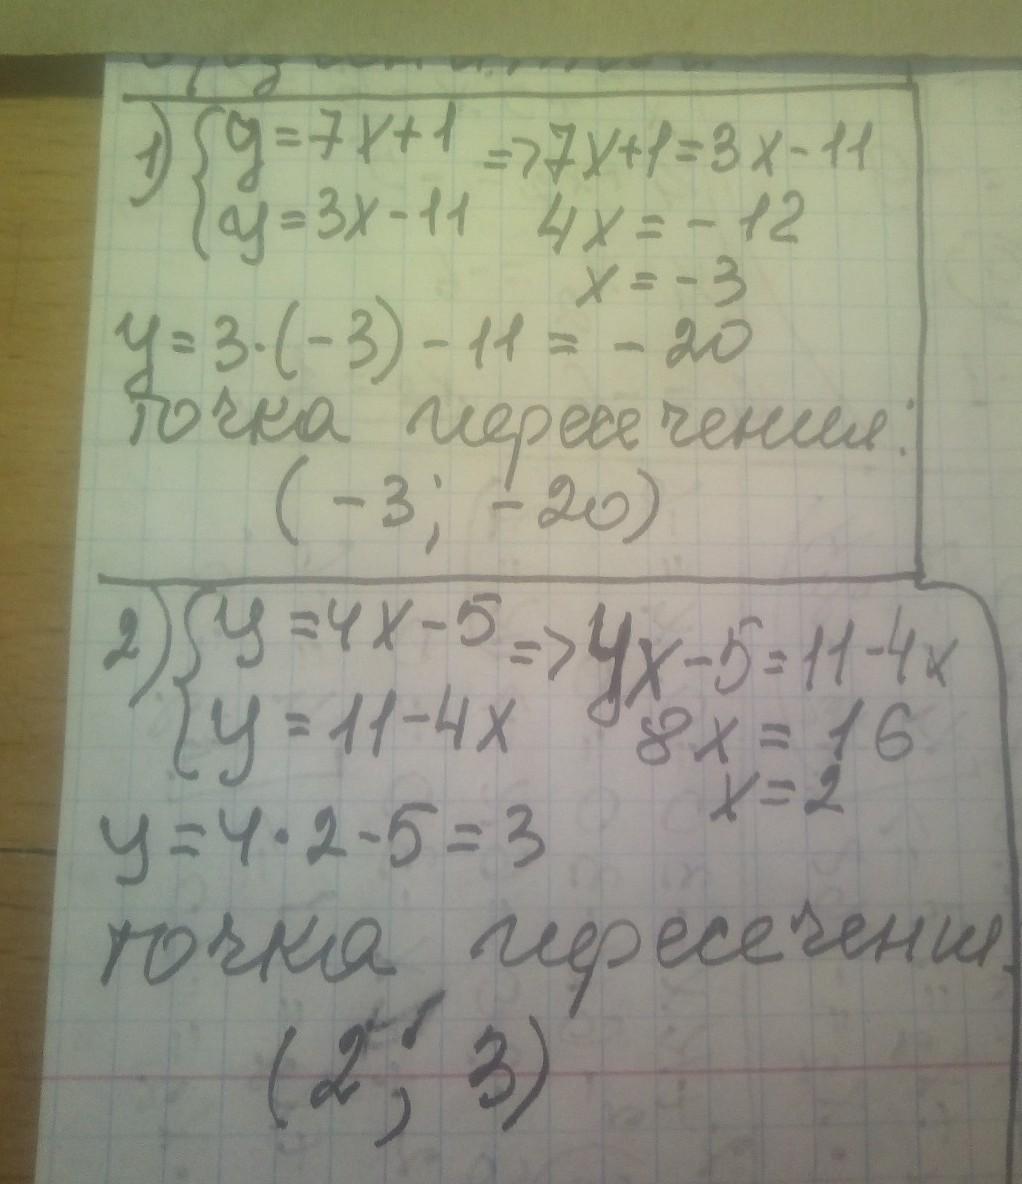 1) { y = 7x+1 => 7x+1 = 3x - 11
y = 3x - 11 4x = - 12
x = - 3
y = 3·(-3) - 11 = - 20
точка пересечения:
( -3; -20)
2) { y = 4x - 5 => 4x - 5 = 11 - 4x
y = 11 - 4x 8x = 16
x = 2
y = 4·2 - 5 = 3
точка пересечени
(2; 3)